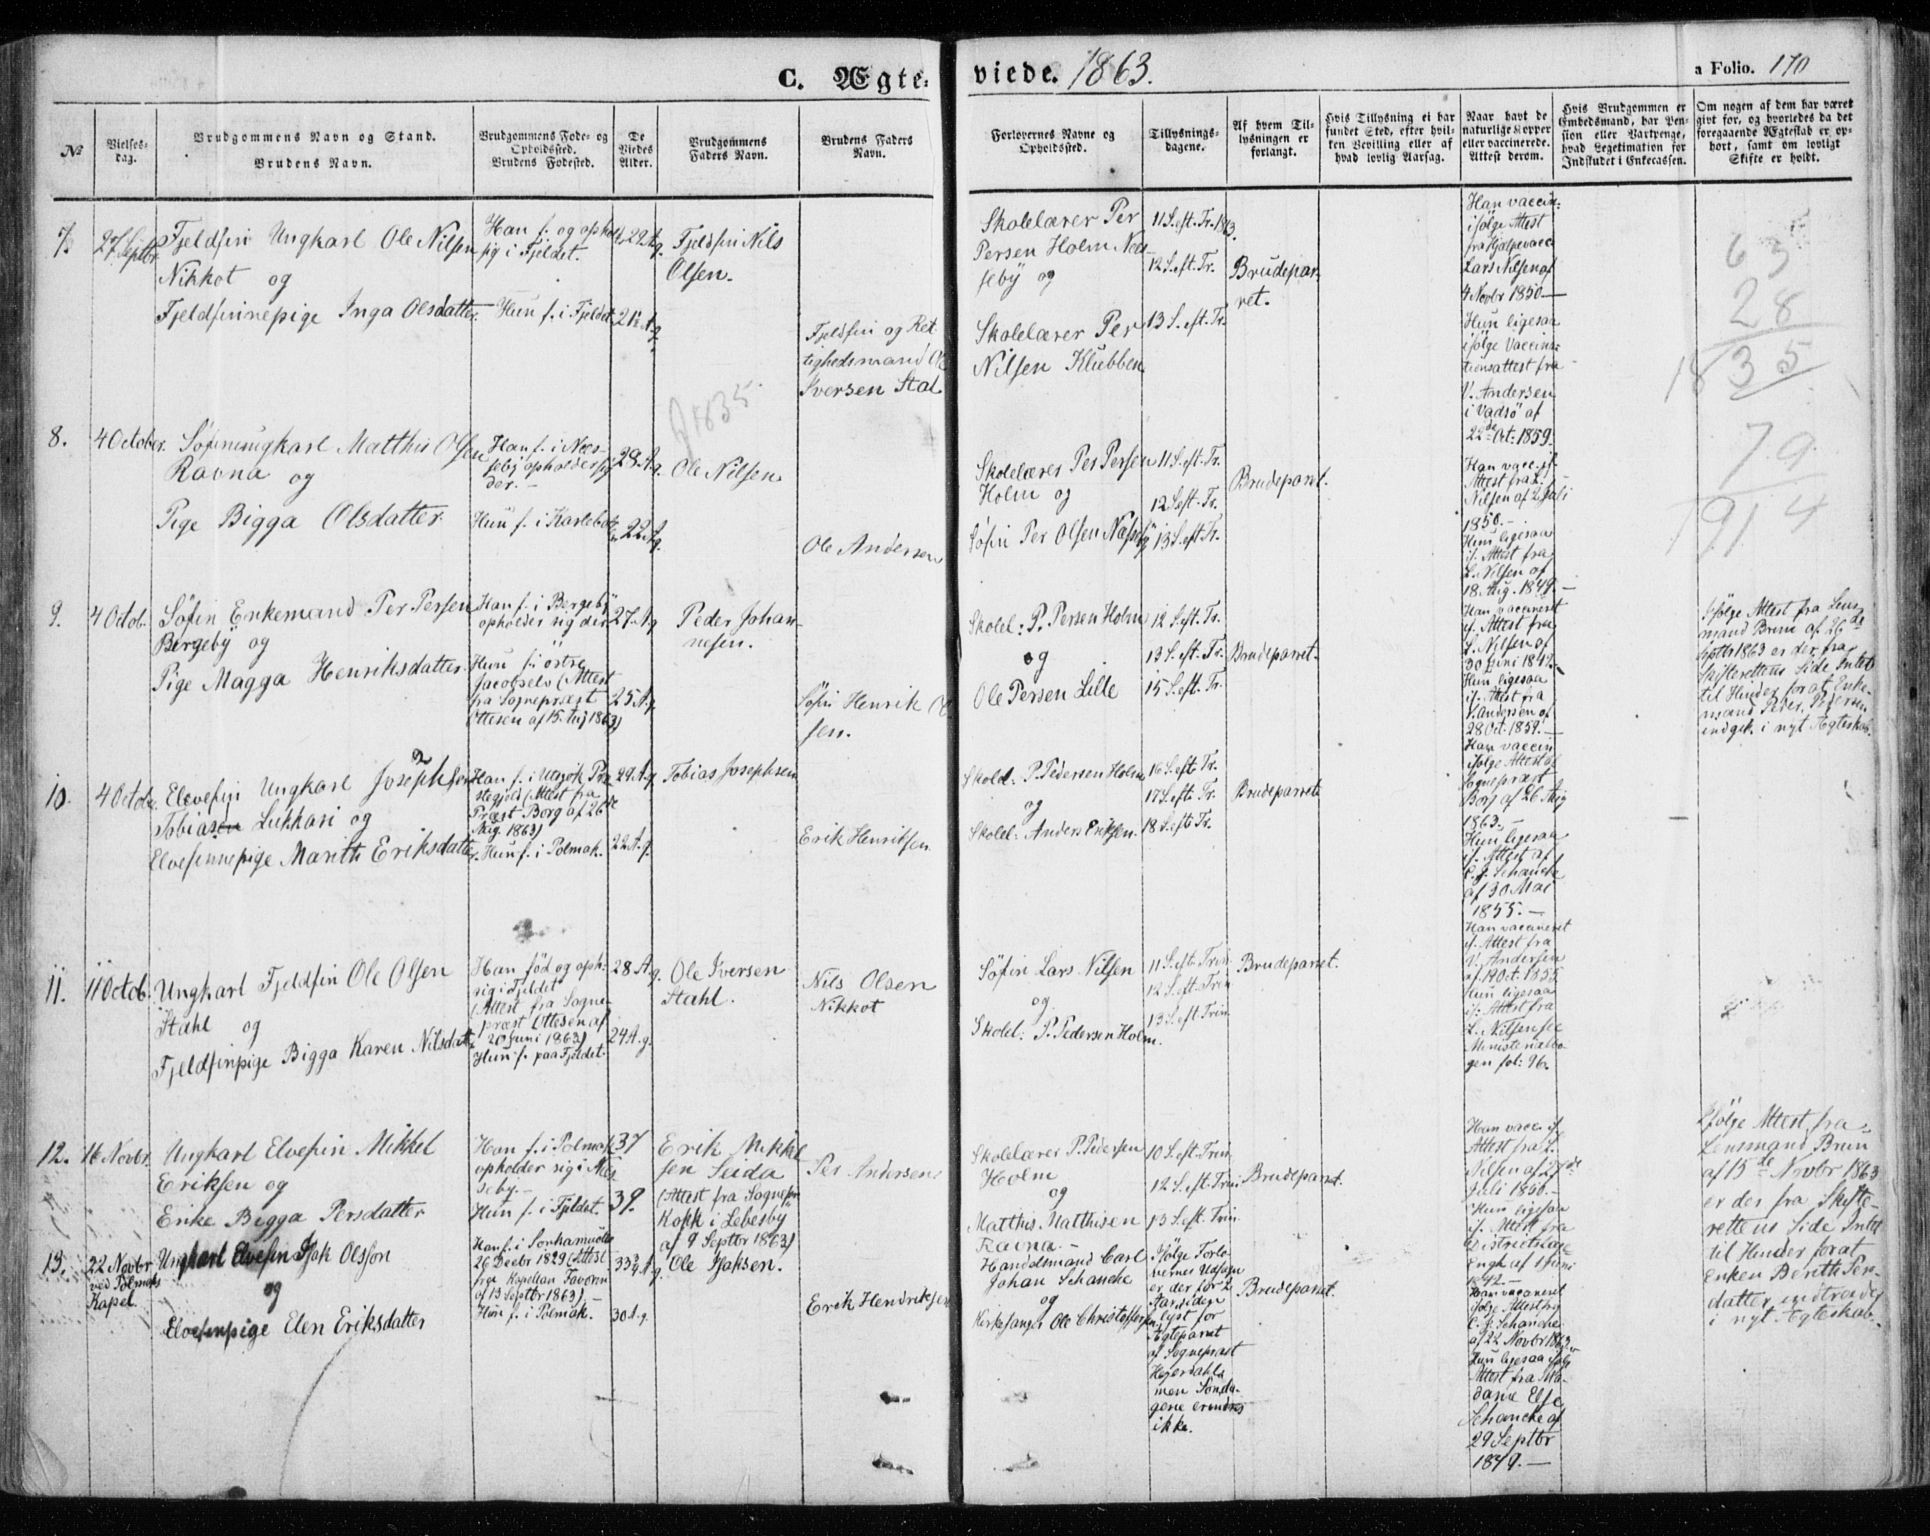 C. Ægte-viede. 1863.
a Folio. 170
№
Vielses-
dag.
Brudgommens Navn og Stand.
Brudens Navn.
Brudgommens Føde- og
Opholdssted.
Brudens Fødested.
De
Viedes
Alder.
Brudgommens
Faders Navn.
Brudens Faders
Navn.
Forlovernes Navne og
Opholdssted.
Tillysnings-
dagene.
Af hvem Til-
lysningen er
forlangt.
Hvis Tillysning ei har
fundet Sted, efter hvil-
ken Bevilling eller af
hvad lovlig Aarsag.
Naar havt de
naturlige Kopper
eller vaccinerede.
Attest derom.
Hvis Brudgommen er
Embedsmand, har Pen-
sion eller Vartpenge,
hvad Legetimation for
Indskudet i Enkecassen.
Om nogen af dem har været
givt for, og hvorledes da det
foregaaende Ægteskab er op-
hørt, samt om lovligt
Skifte er holdt.
7.
27 Septbr.
Fjeldfin Ungkarl Ole Nilsen
Nikkot og
Fjeldfinnepige Inga Olsdatter.
Han f. og ophol
sig i Fjeldet.
Hun f. i Fjeldet
29 A. g.
21½ A. g.
Fjeldfin Nils
Olsen.
Fjeldfin og Ret
tighedsmand Ole
Iversen Stal
Skolelærer Per
Persen Holm Næs-
seby og
Skolelærer Per
Nilsen Klubben
11 S. eft. Tr. 1863.
12 S. eft. Tr.
13 S. eft. Tr.
Brudepar-
ret.
Han vaccin.
ifølge Attest
fra Hjælpevacc
Lars Nilsen af
4 Novbr 1850 —
Hun ligesaa
ifølge Vaccina-
tionsattest fra
V. Andersen
i Vadsö af
22de Oct: 1859.
63
28
1835
79
1914
8.
4 October.
Söfinungkarl Matthis Olsen
Ravna og
Pige Bigga Olsdatter
Han f. i Næs-
seby opholder sig
der. —
Hun f. i Karlebotn
28 A. g.
22 A. g.
f 1835.
Ole Nilsen
Ole Andersen
Skolelærer Per Persen
Holm og
Söfin Per Olsen Næsseby
11 S. eft. Tr.
12 S. eft. Tr.
13 S. eft. Tr.
Brudeparret.
Han vacc. if.
Attest fra L.
Nilsen af 2 Juli
1850. —
Hun ligesaa
if. Attest fra
L. Nilsen af
18 Aug. 1849. —
9.
4 Octob.
Söfin Enkemand Per Persen
Bergeby og
Pige Magga Henriksdatter
Han f. i Bergeby
opholder sig der
Hun f. i östre
Jacobselv (Attest
fra Sognepræst
Ottesen af 15. Aug 1863)
27 A. g
25 A. g.
Peder Johan-
nesen.
Söfin Henrik Ol
sen.
Skolel: P. Persen Holm
og
Ole Persen Lille
12 S. eft. Tr.
13 S. eft. Tr.
15 S. eft. Tr.
Brudeparret.
Han vaccineret
if. Attest fra
L. Nilsen af
30 Juni 1847.
Hun ligesaa
if. Attest fra
V. Andersen af
28 Oct. 1859. —
Ifølge Attest fra Lens
mand Brun af 26de
Septbr 1863 er der fra
Skifterettens Side Intet
til Hinder for at Enke-
mand Peder Pedersen
indgik i nyt Ægteskab.
10.
4 Octobr
Elvefin Ungkarl Josephsen
Tobiasen Lukkari og
Elvefinnepige Marith Eriksdatter
Han f. i Utsjok Præ
stegjeld (Attest fra
Præst Borg af 26de
Aug. 1863)
Hun f. i Polmak.
29 A. g
22 A. g.
Tobias Josephsen
Erik Henriksen
Skolel: P. Pedersen Holm
og
Skolel: Anders Eriksen.
16 S. eft. Tr.
17 S. eft. Tr.
18 S. eft. Tr.
Brudeparret.
Han vaccin
ifølge Attest af
Sognepræst
Borg af 26 Aug
1863. —
Hun ligesaa
if. Attest af
C. J. Schanche
af 30 Mai
1855. —
11.
11 Octob.
Ungkarl Fjeldfin Ole Olsen
Stahl og
Fjeldfinpige Bigga Karen Nilsdatt
Han föd og oph.
sig i Fjeldet
(Attest fra Sogne-
præst Ottesen af
20 Juni 1863)
Hun f. paa Fjeldet.
28 A. g.
24 A. g.
Ole Iversen
Stahl.
Nils Olsen
Nikkot
Söfin Lars Nilsen
og
Skolel: P. Pedersen Holm.
11 S. eft. Trin
12 S. eft. Trin
13 S. eft. Trin
Brudeparret.
Han vaccineret
if. Attest fra
V. Andersen
af 19 Oct. 1855
Hun ligesaa
if: Attest fra
L. Nilsen see
Ministerialbo-
gen fol: 96.
12.
16 Novbr.
Ungkarl Elvefin Mikkel
Eriksen og
Enke Bigga Persdatter
Han f. i Polmak
opholder sig i Næs
seby. —
Hun f. i Fjeldet.
37
39.
Erik Mikkel
sen Seida
(Attest fra Sognepr
Kokk i Lebesby
af 9 Septbr 1863)
Per Andersen
Skolelærer P. Pedersen
Holm
og
Matthis Matthisen
Ravna. —
10 S. eft. Trin.
12 S. eft. Trin
13 S. eft. Trin
Brudeparret.
Han vacc. if.
Attest fra L.
Nilsen af 27de
Juli 1846. —
Hun ligesaa
if. Attest fra
Districtslæge
Engh af 1 Juni
1842. —
Ifølge Attest fra
Lensmand Brun
af 15de Novbr 1863
er der fra Skifte-
rettens Side Intet
til Hinder for at
Enken Berith Pers-
datter indtræder
i nyt Ægteskab.
13.
22 Novbr
ved Polmaks
Kapel.
Ungkarl Elvefin Isak Olsson
og
Elvefinpige Elen Eriksdatter
Han f. i Sorhamuolla
26 Decbr 1829 (Attest
fra Kapellan Favorin
af 13 Septbr 1863) —
Hun f. i Polmak.
33¾ A. g
30 A. g.
Ole Isaksen.
Erik Hendriksen
Handelsmand Carl
Johan Schanche
og
Kirkesanger Ole Christoffersen
Ifølge Forlo-
vernes Udsagn
er der for 2
Aar siden
lyst for
Ægteparret
af Sognepræst
Heyerdahl
men Sönda-
gene erindres
ikke.
Brudeparret.
Han vaccineret
ifølge Attest fra
C. J. Schanche
af 22 Novbr 1863
Hun ligesaa ifølg
Attest fra Ma-
dame Else
Schanche af
29 Septbr
1849. —